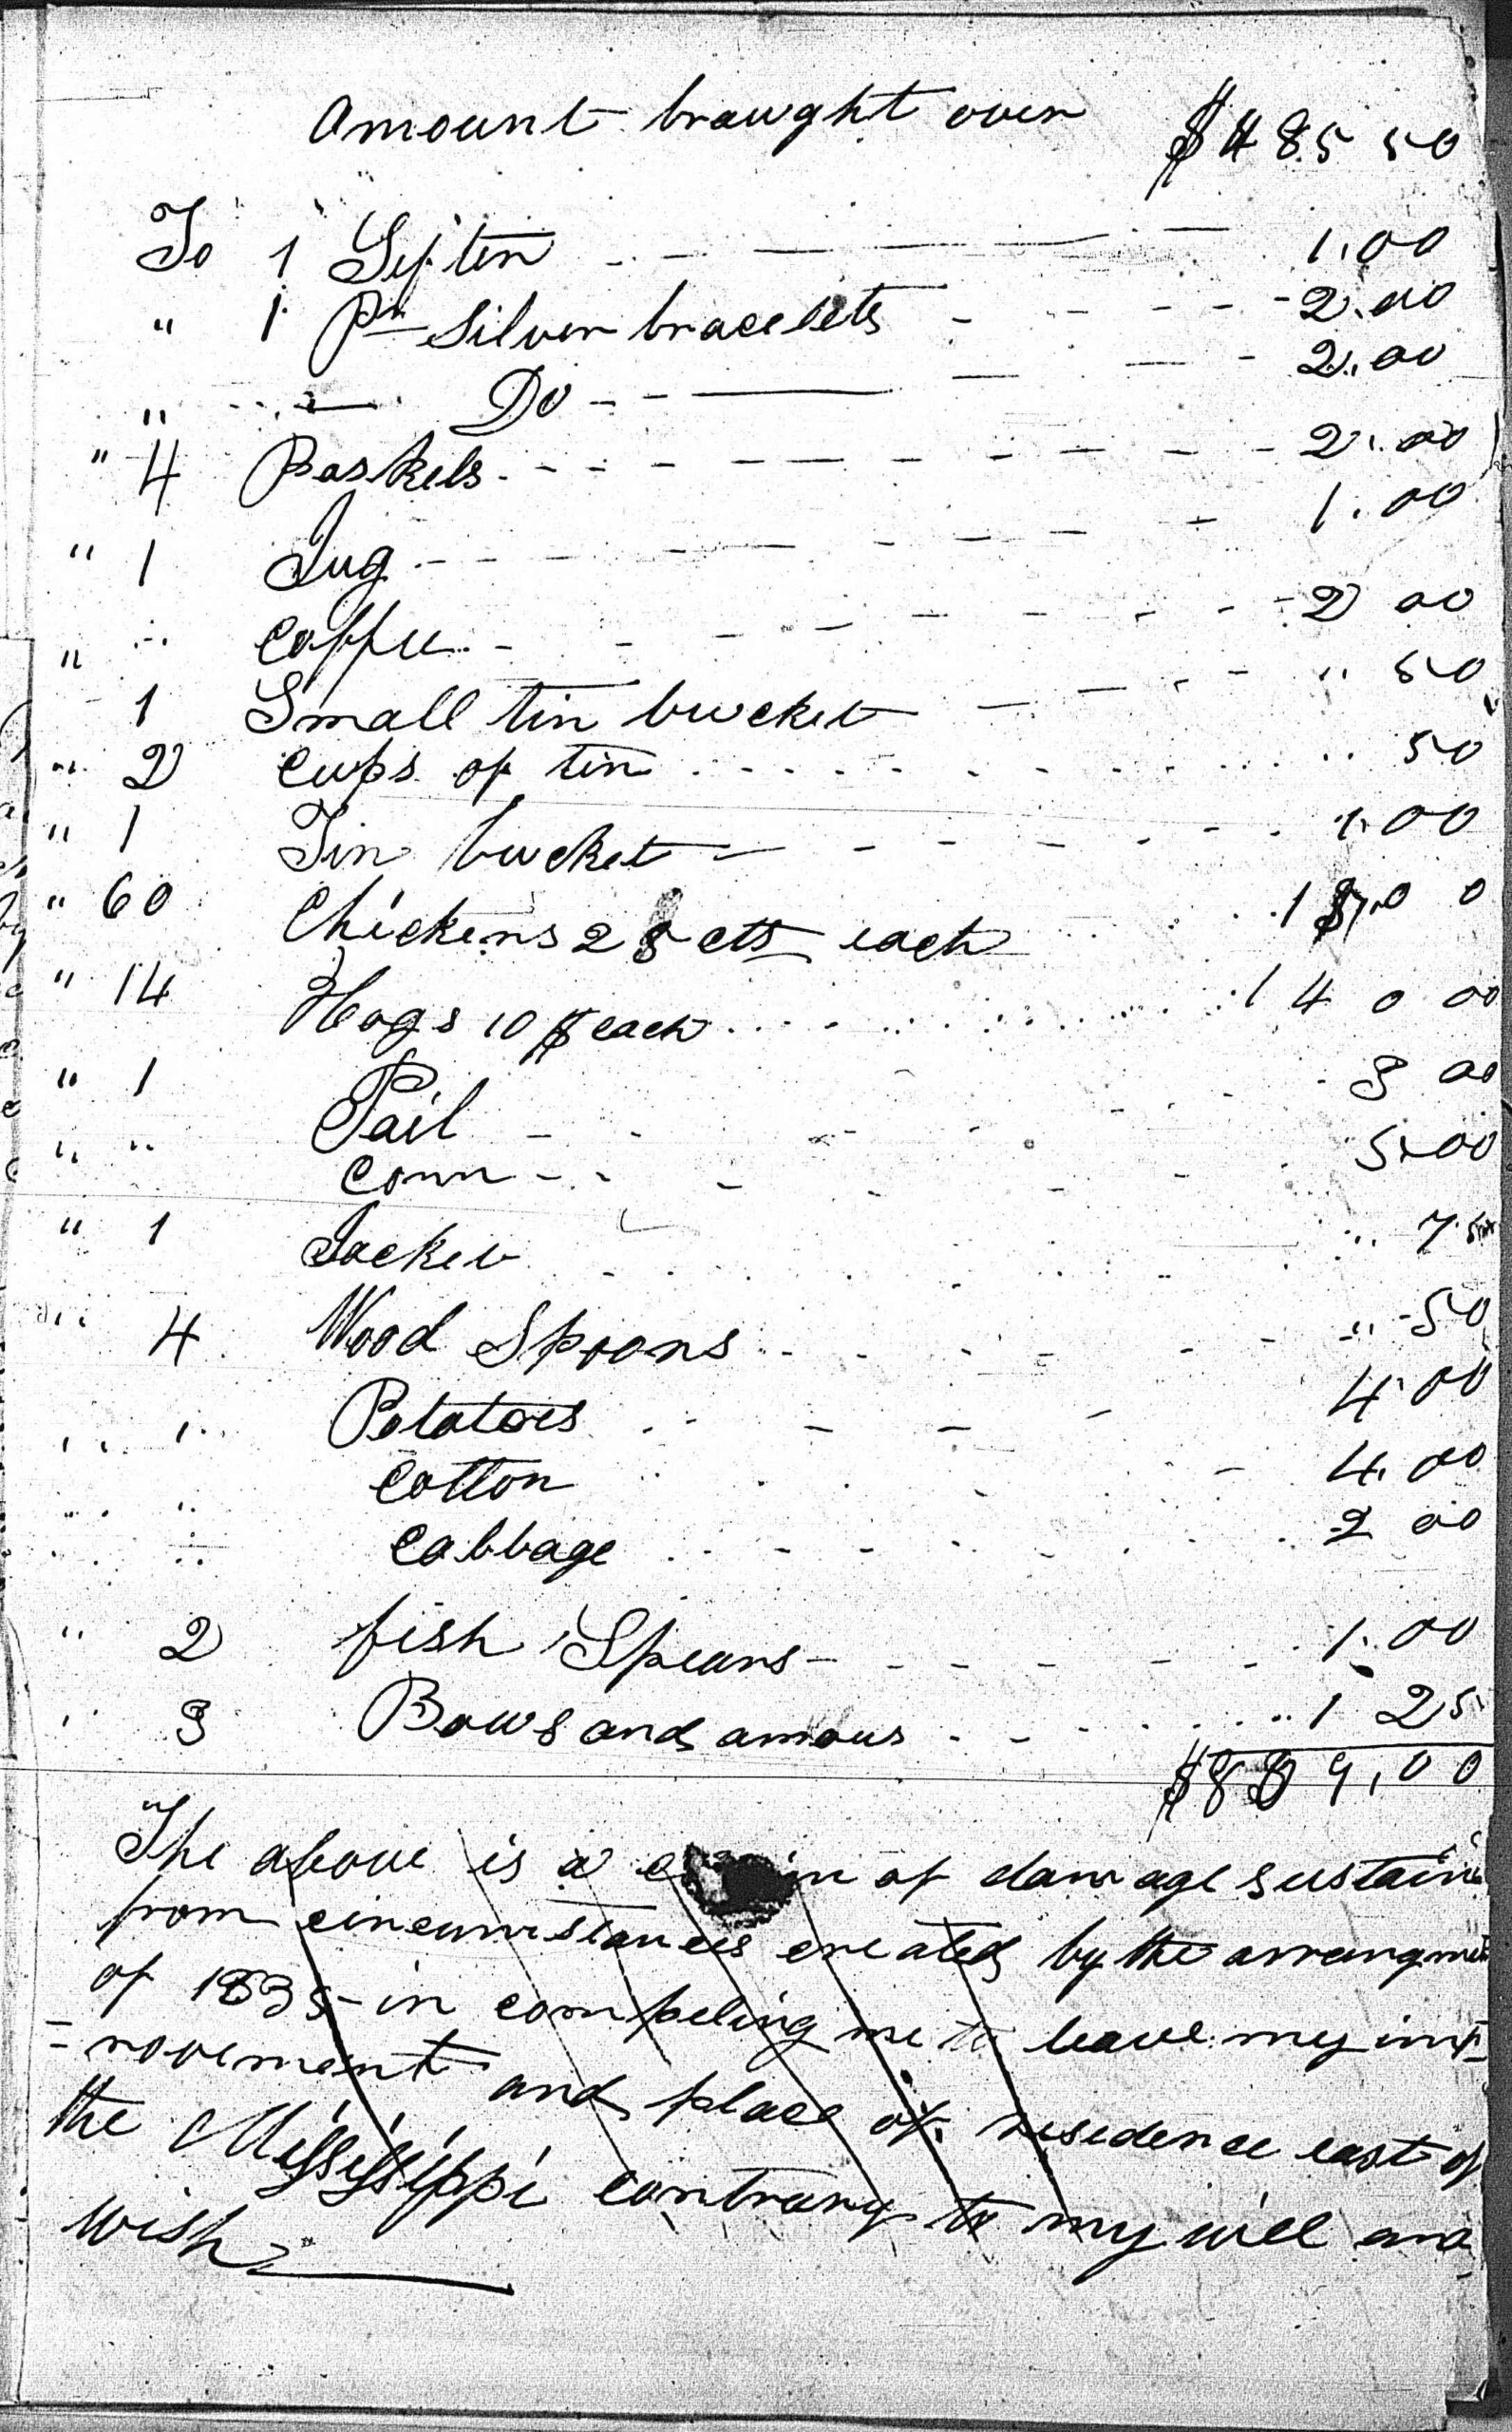 Amount brought over $485 50
To 1 Sifter 1.00
" 1 Pr Silver bracelets 2.00
" " Do 2.00
" 4 Baskets 2.00
" 1 Jug 1.00
" " Coffee 2 00
1 Small tin bucket " 50
" 2 cups of tin 50
" 1 Tin bucket 1.00
" 60 Chickens 25 cts each 15.00
" 14 Hogs 10 $ each 140 00
" 1 Pail 3 00
" " Corn 5.00
" 1 Jacket " 75
" 4 Wood Spoons " 50
" " Potatoes 4.00
" " Cotton 4.00
" " Cabbage 2 00
" 2 fish Spears 1.00
" 3 Bows and arrows 1 25
The above is a of damage sustain
from circumstances created by the arrangment
of 1835 in compeling me to leave my imp
=rovement and place of residence east of
the Mississippi contrary to my will and
wish